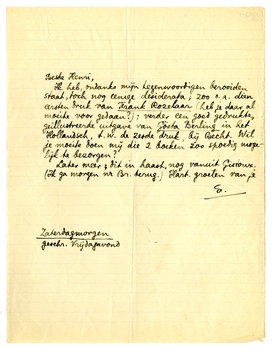 Beste Henri,
Ik heb, ondanks mijn tegenwoordigen berooiden
staat, toch nog eenige desiderata; zoo o.a. dien
eersten druk van Frank Rozelaar (heb je daar al
moeite voor gedaan?); verder een goed gedrukte,
geïllustreerde uitgave van Gösta Berling in het
Hollandsch, t.w. de zesde druk, bij Becht. Wil
je moeite doen mij die 2 boeken zoo spoedig moge-
lijk te bezorgen!
Later meer; dit in haast, nog vanuit Gistoux.
(Ik ga morgen nr Br. terug.) Hart. groeten van je
E.
Zaterdagmorgen
geschr. Vrijdagavond